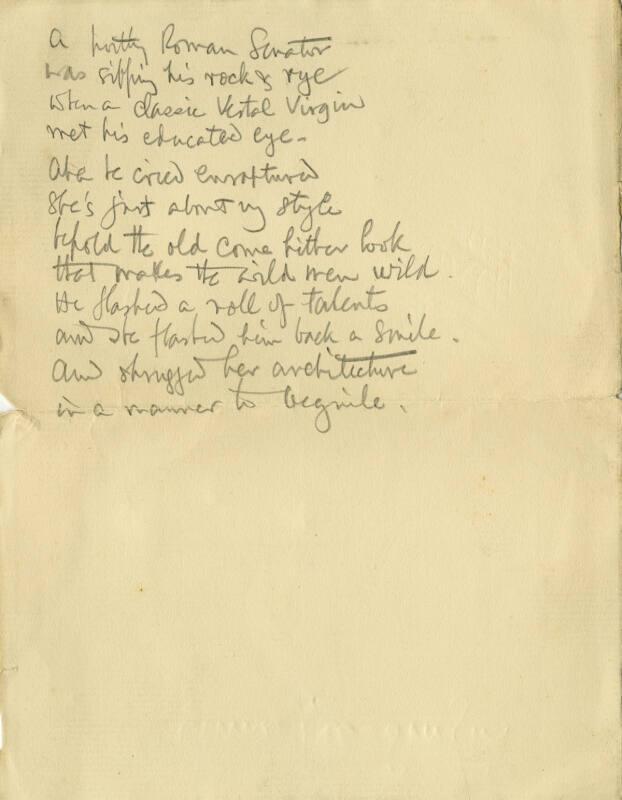 A portly Roman Senator
was sipping his rock & rye
when a classic Vestal Virgin
met his educated eye.
Aha he cried enraptured
She's just about my style
behold the old come hither look
that makes the wild men wild.
He flashed a roll of talents
and she flashed him back a smile.
And shrugged her architecture
in a manner to beguile.